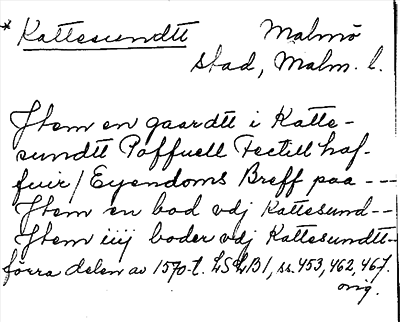 * Kattesundtt Malmö
stad, Malm. l.
Jtem en gaardtt i Katte-
sundtt Poffuell Fectill haf-
fuir / Eyendoms Breff paa ---
Jtem en bod vdj Kattesund--
Jtem iiij boder vdj Kattesundtt--
förra delen av 1570-t. LSLB1, ss. 453, 462, 467.
orig.